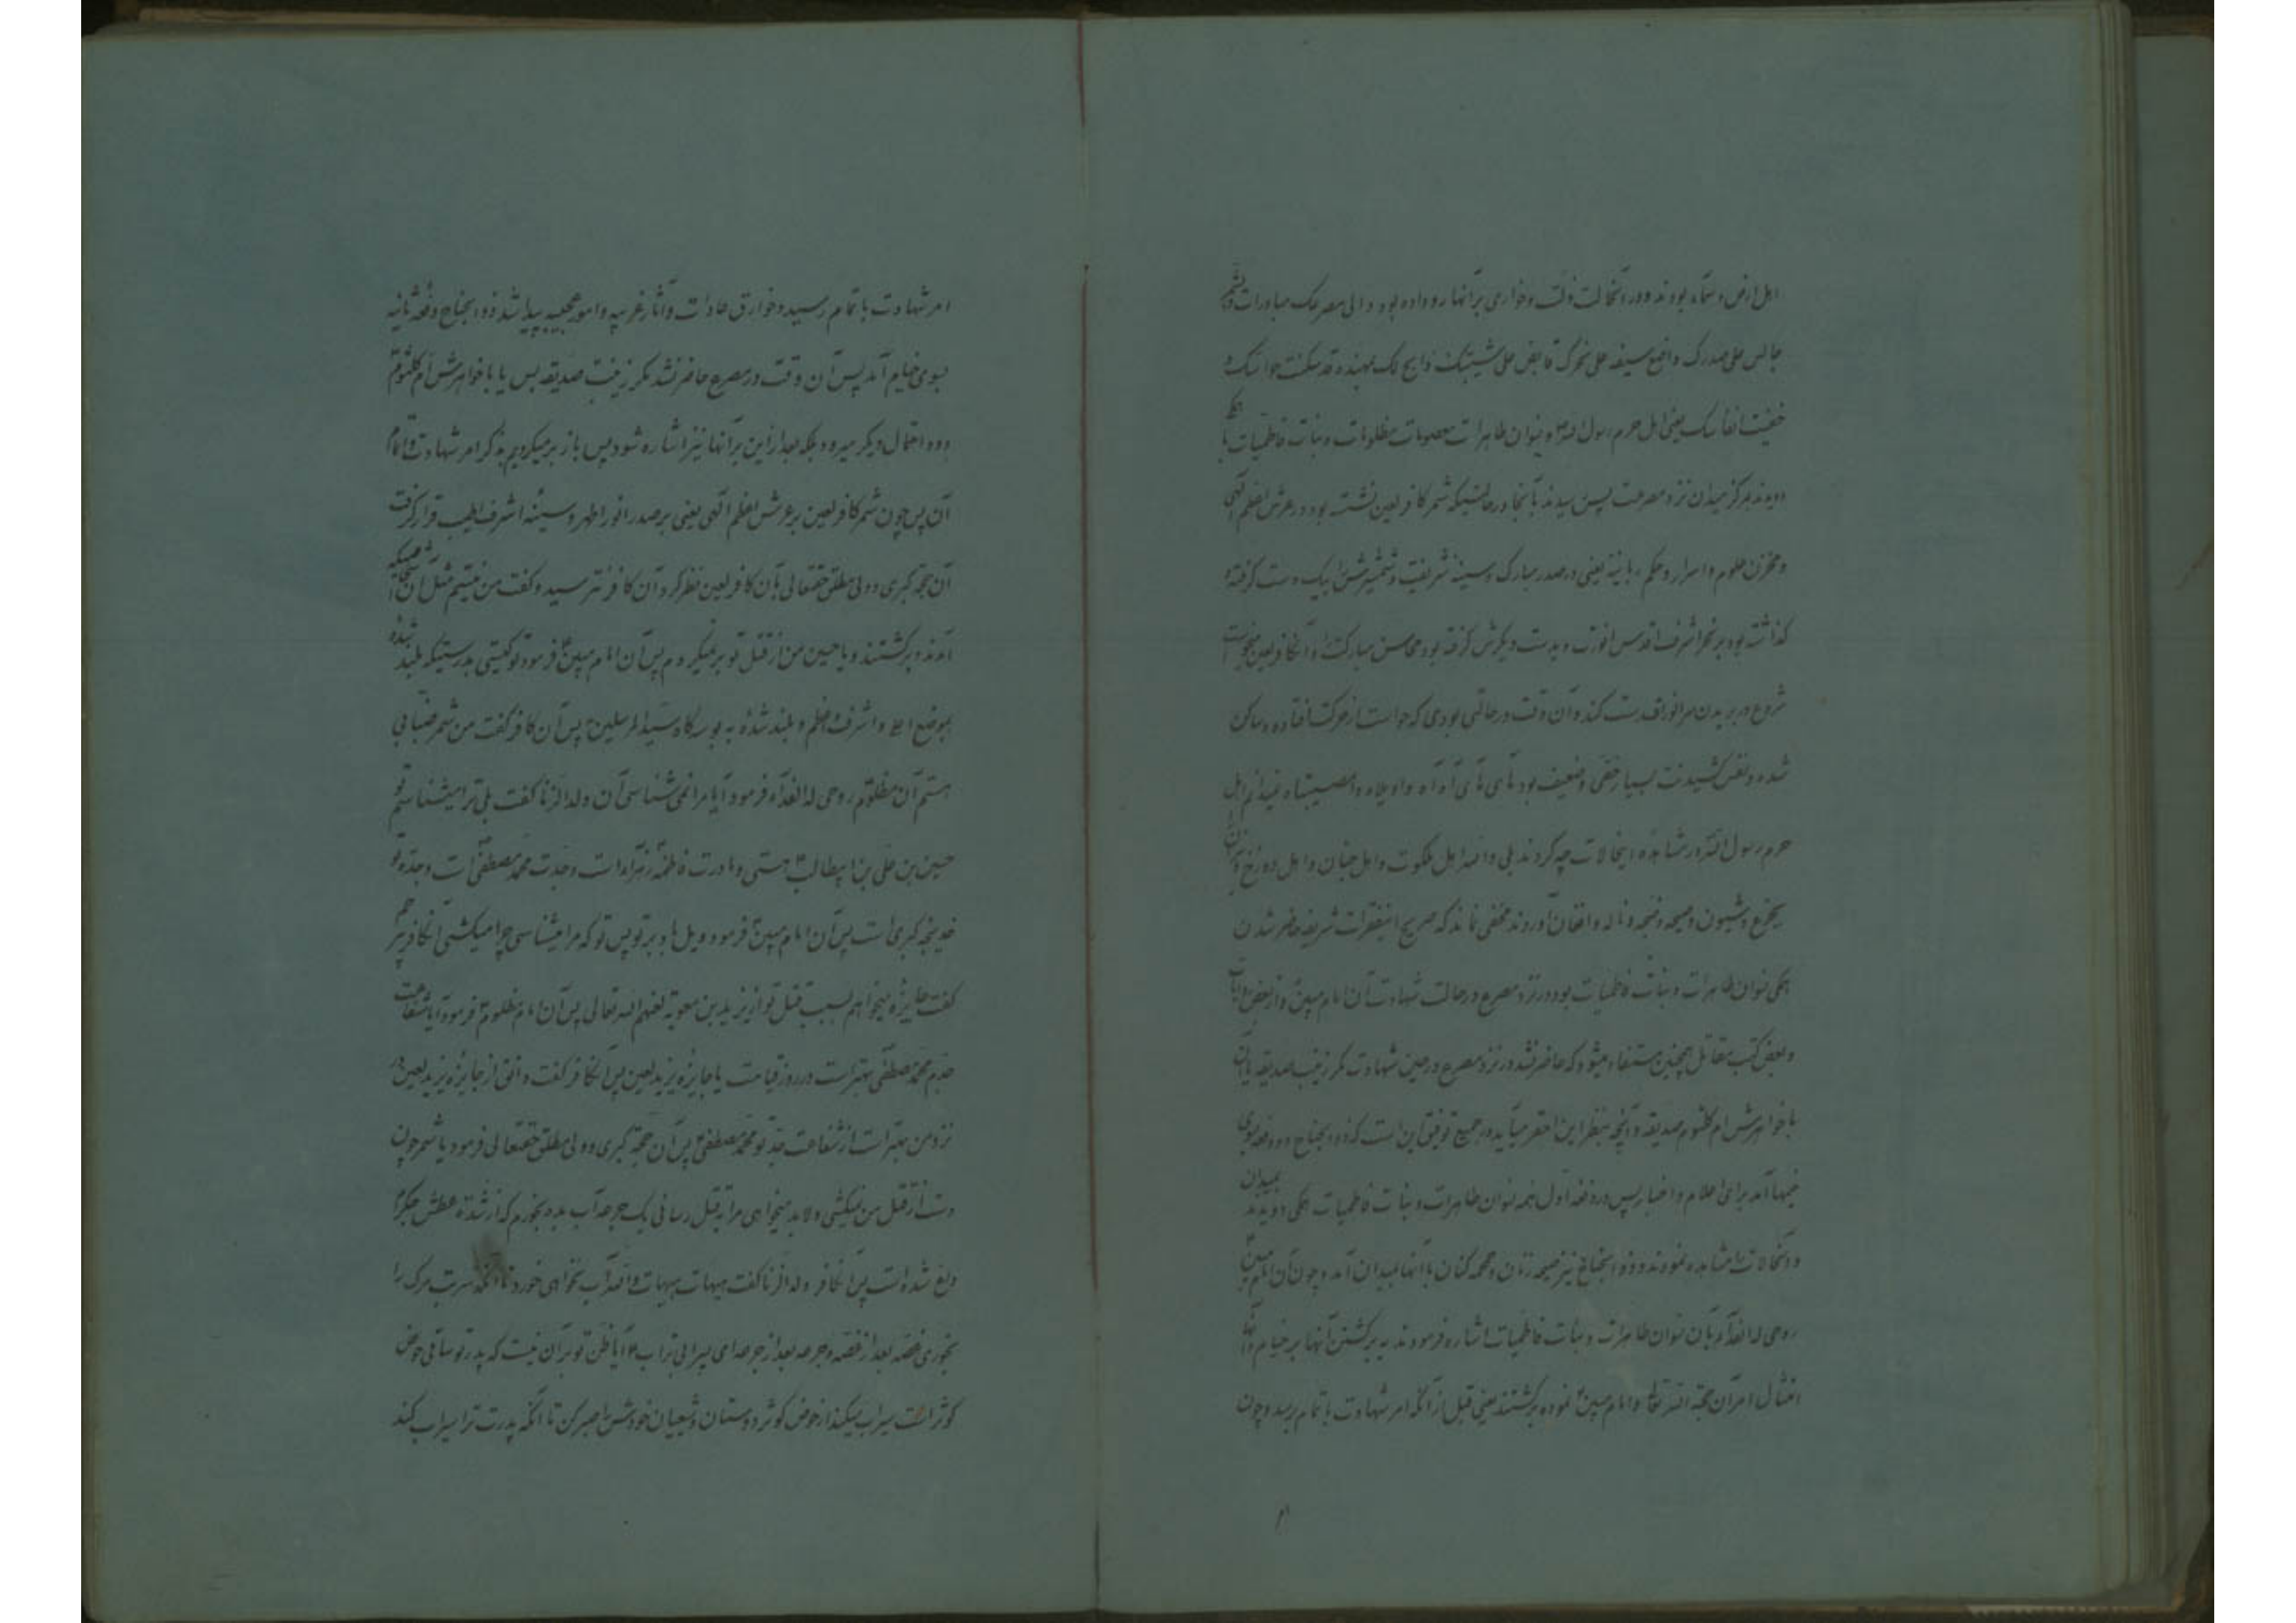 اهل ارض و سماء بودند و در آنحالت ذلت و خواری بر آنها رو داده بود و الی مصرعک مبادرات و الشمر
جالس علی صدرک واضع سیفه علی نحرک قابض علی شیبتک ذابح لک بمهنده قد سکنت حواسک و
خفیت انفاسک یعنی اهل حرم رسول الله و نسوان طاهرات معصومات مظلومات و بنات فاطمیات
دویدند بمرکز میدان نزد مصرعت پس رسیدند بآنجا در حالتیکه شمر کافر لعین نشسته بود در عرش اعظم الهی
و مخزن علوم و اسرار و حکم ربانیه یعنی در صدر مبارک و سینه شریفت و شمشیرش را بیک دست گرفته و
گذاشته بود بر نحر اشرف اقدس انورت و بدست دیگرش گرفته بود محاسن مبارکت را و آنکافر لعین میخواست
شروع در بریدن سر انور اقدست کند و آن وقت در حالتی بودی که حواست از حرکت افتاده و ساکن
شده و نفس کشیدنت بسیار خفی و ضعیف بود های های آه آه واویلاه وامصیبتاه نمیدانم اهل
حرم رسول الله در مشاهده اینحالات چه کردند بلی والله اهل ملکوت و اهل جنان و اهل دوزخ و نیران
بجزع و شیون و صیحه و ضجه و ناله و افغان آوردند مخفی نماند که صریح اینفقرات شریفه حاضر شدن
همگی نسوان طاهرات و بنات فاطمیات بود در نزد مصرع در حالت شهادت آن امام مبین و از بعض روایات
و بعض کتب مقاتل همچنین مستفاد میشود که حاضر نشد در نزد مصرع در حین شهادت مگر زینب صدیقه یا آن
با خواهرش ام کلثوم صدیقه و آنچه بنظر این احقر میآید در جمیع توفیق این است که ذو الجناح دو دفعه بسوی
خیمها آمد برای اعلام و اخبار پس در دفعه اول همه نسوان طاهرات و بنات فاطمیات همگی دویدند بمیدان
و آنحالات را مشاهده نمودند و ذو الجناح نیز صیحه زنان و حمحمه کنان با آنها بمیدان آمد و چون آن امام مبین
روحی له الفداء بآن نسوان طاهرات و بنات فاطمیات اشاره فرمودند به برگشتن آنها بر خیام و آنها
امتثال امر آن حجة الله تعالی و امام مبین نموده برگشتند یعنی قبل از آنکه امر شهادت باتمام برسد و چون
امر شهادت باتمام رسید و خوارق عادات و آثار غریبه و امور عجیبه پیدا شد ذو الجناح دفعه ثانیه
بسوی خیام آمد پس آن وقت در مصرع حاضر نشد مگر زینب صدیقه بس یا با خواهرش ام کلثوم
و دو احتمال دیگر میرود بلکه بعد از این بر آنها نیز اشاره شود پس باز برمیگردیم بذکر امر شهادت و اتمام
آن پس چون شمر کافر لعین بر عرش اعظم الهی یعنی بر صدر انور اطهر و سینه اشرف اطیب قرار گرفت
آن حجت کبری و ولی مطلق حقتعالی بآن کافر لعین نظر کرد آن کافر نترسید و گفت من نیستم مثل آن اشخاصیکه
آمدند و برگشتند و یا حسین من از قتل تو برنمیگردم پس آن امام مبین فرمود تو کیستی بدرستیکه بلند شده
بموضع اعلا و اشرف و اعظم و بلند شده به بوسه گاه سید المرسلین پس آن کافر گفت من شمر ضبابی
هستم آن مظلوم روحی له الفداء فرمود آیا مرا نمی شناسی آن ولد الزنا گفت بلی ترا میشناسم تو
حسین بن علی بن ابیطالب هستی و مادرت فاطمه زهراء است و جدت محمد مصطفی است و جده تو
خدیجه کبری است پس آن امام مبین فرمود ویل باد بر تو پس تو که مرا میشناسی چرا میکشی آنکافر بیرحم
گفت جایزه میخواهم بسبب قتل تو از یزید بن معویه لعنهم الله تعالی پس آن امام مظلوم فرمود آیا شفاعت
جدم محمد مصطفی بهتر است در روز قیامت یا جایزه یزید لعین پس آنکافر گفت دانقی از جایزه یزید لعین در
نزد من بهتر است از شفاعت جد تو محمد مصطفی پس آن حجة کبری و ولی مطلق حقتعالی فرمود یا شمر چون
دست از قتل من نمیکشی و لابد میخواهی مرا بقتل رسانی یک جرعه آب بده بخورم که از شدة عطش جگرم
داغ شده است پس آنکافر ولد الزنا گفت هیهات هیهات والله آب نخواهی خورد تا آنکه شربت مرگ را
بخوری غصه بعد از غصه و جرعه بعد از جرعه ای پسر ابی تراب آیا ظن تو بر آن نیست که پدر تو ساقی حوض
کوثر است سیراب میکند از حوض کوثر دوستان و شیعیان خودش را صبر کن تا آنکه پدرت ترا سیراب کند